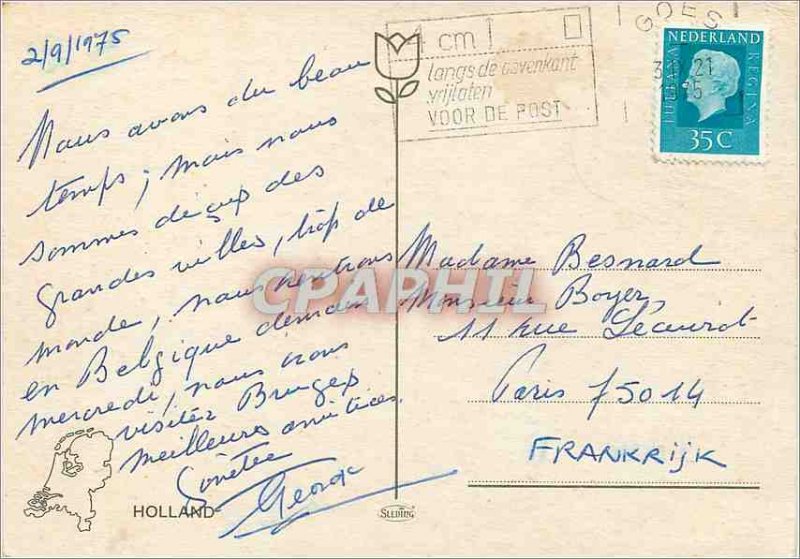 2/9/1975
Nous avons du beau
temps, mais nous
sommes déçus des
grandes villes, trop de
monde, nous rentrons
en Belgique demain
mercredi, nous irons
visiter Bruges
meilleures amitiés.
George
HOLLAND
1 cm
langs de bovenkant
vrijlaten
VOOR DE POST
GOES
NEDERLAND
JULIANA REGINA
35 C
CPAPHIL
Madame Besnard
Monsieur Boyer
11 rue
Paris 75014
FRANKRIJK